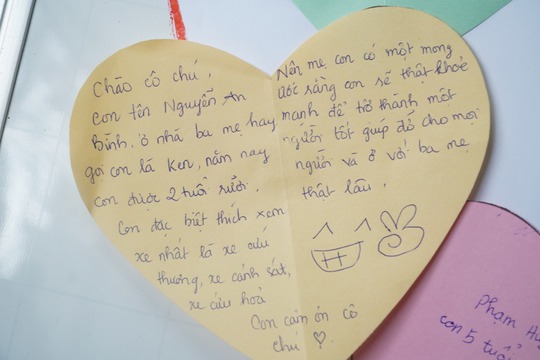 Chào cô chú,
Con tên Nguyễn An
Bình, ở nhà ba mẹ hay
gọi con là Ken, năm nay
con được 2 tuổi rưỡi.
Con đặc biệt thích xem
xe nhất là xe cứu
thương, xe cảnh sát,
xe cứu hoả
Nên mẹ con có một mong
ước rằng con sẽ thật khoẻ
mạnh để trở thành một
người tốt giúp đỡ cho mọi
người và ở với ba mẹ
thật lâu.
Con cảm ơn cô
chú ♡
Phạm
con 5 tuổi